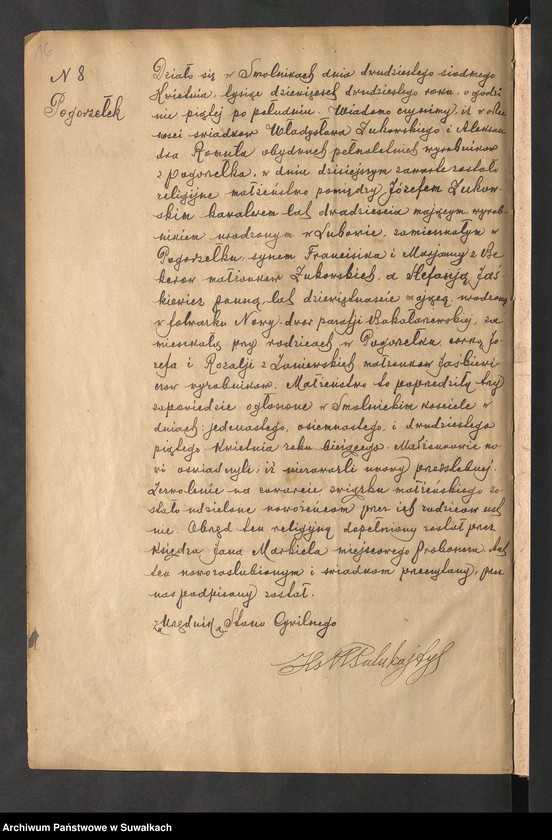 16
N 8
Pogorzełek
Działo się w Smolnikach dnia dwudziestego siódmego
Kwietnia, tysiąc dziewięćset dwudziestego roku, o godzi
nie piątej po południu. Wiadomo czynimy, iż w obec
ności świadków Władysława Żukowskiego i Aleksan
dra Romuła obydwuch pełnoletnich wyrobników
z Pogorzelka, w dniu dzisiejszym zawarte zostało
religijne małżeństwo pomiędzy Józefem Żukow
skim kawalerem lat dwadzieścia mającym wyrob
nikiem urodzonym w Lubowie, zamieszkałym w
Pogorzelku, synem Franciszka i Marjanny z
małżonków Żukowskich, a Stefanją Jaś
kiewicz panną, lat dziewiętnaście mającą, urodzoną
w folwarku Nowy-dwór parafji Bakałarzewskiej, za
mieszkałą przy rodzicach w Pogorzelku, córką Jó
zefa i Rozalji z Zaniewskich małżonków Jaśkiewi
czów wyrobników. Małżeństwo to poprzedziły trzy
zapowiedzie ogłoszone w Smolnickim kościele w
dniach: jedenastego, osiemnastego, i dwudziestego
piątego Kwietnia roku bieżącego. Małżonkowie no
wi oświadczyli, iż niezawarli umowy przedślubnej.
Zezwolenie na zawarcie związku małżeńskiego zo
stało udzielone nowożeńcom przez ich rodziców ust
nie. Obrzęd ten religijny dopełniony został przez
Księdza Jana Markiela miejscowego Proboszcza. Akt
ten nowozaślubionym i świadkom przeczytany, przez
nas podpisany został.
Urzędnik Stanu Cywilnego
Ks
Archiwum Państwowe w Suwałkach